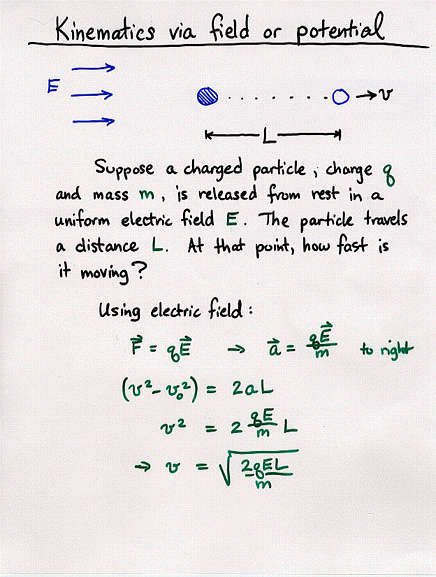 Kinematics via field or potential
E
v
L
Suppose a charged particle, charge q
and mass m, is released from rest in a
uniform electric field E. The particle travels
a distance L. At that point, how fast is
it moving?
Using electric field:
F⃗ = qE⃗ → a⃗ = qE⃗/m to right
(v² - v₀²) = 2aL
v² = 2 qE/m L
→ v = √(2qEL/m)